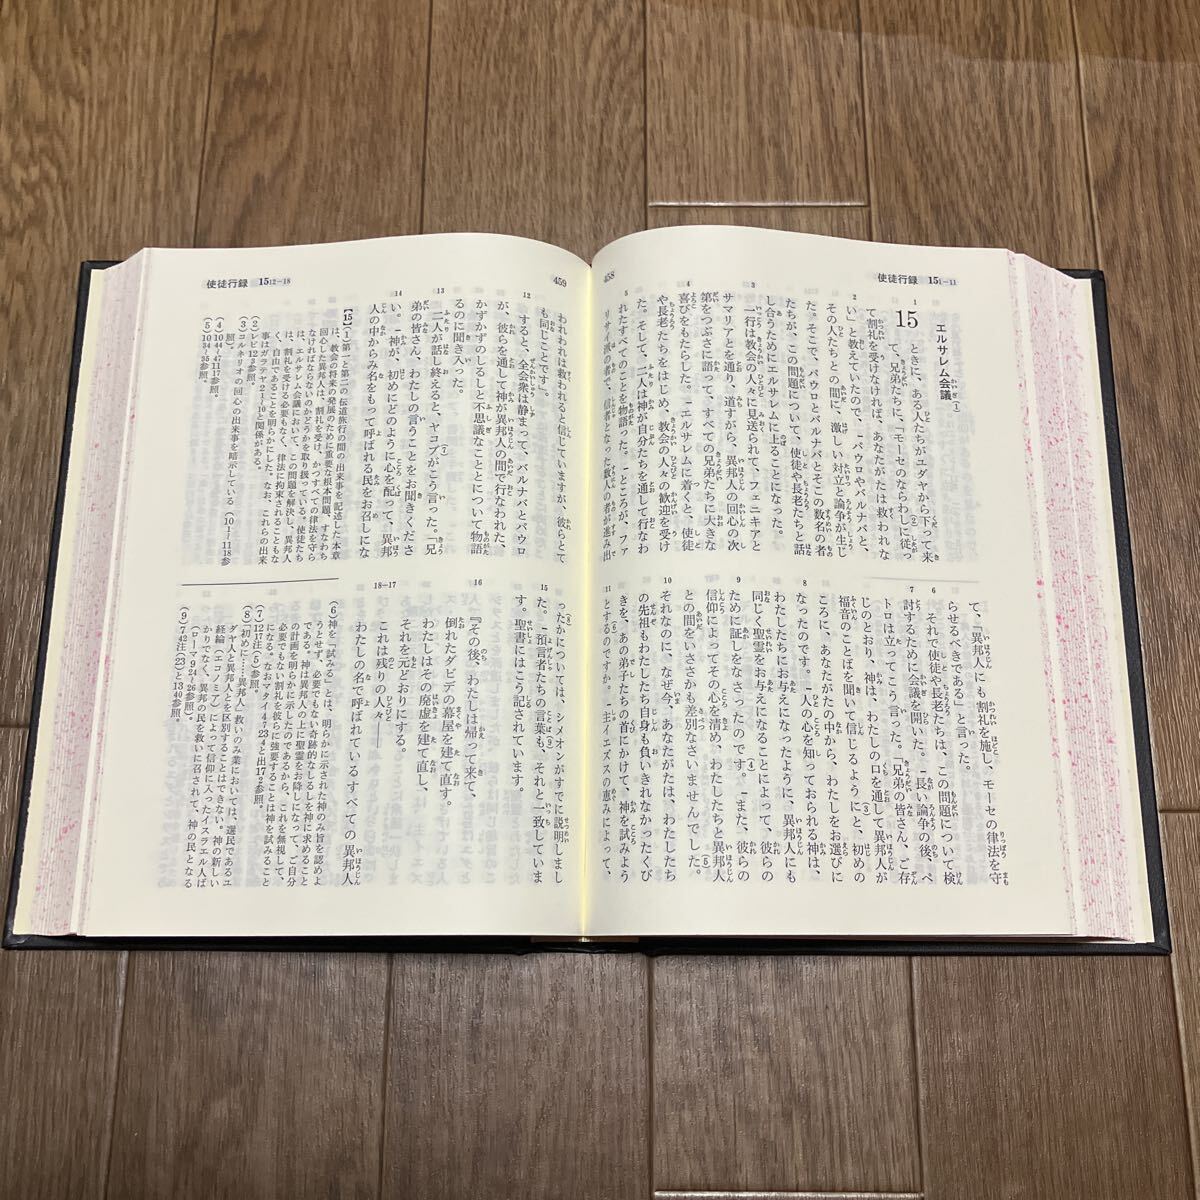 使徒行録 15 1-11
458
エルサレム会議(1)
15
1 ときに、ある人たちがユダヤから下って来
て、兄弟たちに、「モーセのならわしに従っ
て割礼を受けなければ、あなたがたは救われな
2 い」と教えていたので、-パウロやバルナバと、
その人たちとの間に、激しい対立と論争が生じ
た。そこで、パウロとバルナバとそこの数名の者
たちが、この問題について、使徒や長老たちと話
し合うためにエルサレムに上ることになった。
3 一行は教会の人々に見送られて、フェニキアと
サマリアとを通り、道すがら、異邦人の回心の次
第をつぶさに語って、すべての兄弟たちに大きな
4 喜びをもたらした。-エルサレムに着くと、使徒
や長老たちをはじめ、教会の人々の歓迎を受け
た。そして、二人は神が自分たちを通して行なわ
5 れたすべてのことを物語った。-ところが、ファ
リサイ派の者で、信者となった数人の者が進み出
て、「異邦人にも割礼を施し、モーセの律法を守
らせるべきである」と言った。
6 それで使徒や長老たちは、この問題について検
7 討するために会議を開いた。-長い論争の後、ペ
トロは立ってこう言った。「兄弟の皆さん、ご存
じのとおり、神は、わたしの口を通して異邦人が
福音のことばを聞いて信じるようにと、初めの
ころに、あなたがたの中から、わたしをお選びに
8 なったのです。-人の心を知っておられる神は、
わたしたちにお与えになったように、異邦人にも
同じ聖霊をお与えになることによって、彼らの
9 ために証しをなさったのです。(4)-また、彼らの
信仰によってその心を清め、わたしたちと異邦人
との間をいささかも差別なさいませんでした。(5)
10 それなのに、なぜ今、あなたがたは、わたしたち
の先祖もわたしたち自身も負いきれなかったくび
きを、あの弟子たちの首にかけて、神を試みよう
11 とするのですか。(6)-主イエズスの恵みによって、
使徒行録 15 12-18
459
われわれは救われると信じていますが、彼らとて
も同じことです」。
12 すると、全会衆は静まって、バルナバとパウロ
が、彼らを通して神が異邦人の間で行なわれた、
かずかずのしるしと不思議なこととについて物語
るのに聞き入った。
13 二人が話し終えると、ヤコブがこう言った。(7)「兄
弟の皆さん、わたしの言うことをお聞きくださ
14 い。-神が、初めにどのように心を配って、異邦
人の中からみ名をもって呼ばれる民をお召しにな
ったかについては、シメオンがすでに説明しまし
15 た。(8)-預言者たちの言葉も、(9)それと一致していま
す。聖書にはこう記されています。
16 『その後、わたしは帰って来て、
倒れたダビデの幕屋を建て直す。
わたしはその廃虚を建て直し、
それを元どおりにする。
18-17 これは残りの人々——
わたしの名で呼ばれているすべての異邦人
【15】(1)第一と第二の伝道旅行の間の出来事を記述した本章
は、教会の将来の発展のために重要な根本問題、すなわち
回心した異邦人は、割礼を受け、かつすべての律法を守ら
なければならないのかどうかを取り扱っている。使徒たち
は、エルサレム会議において、この問題を解決し、異邦人
は、割礼を受ける必要もなく、律法に拘束されることもな
く、自由であることを明らかにした。なお、これらの出来
事はガラテヤ2 1-10と関係がある。
(2)レビ12 3参照。
(3)コルネリオの回心の出来事を暗示している(10 1-11 18参
照)。
(4)10 44-47 11 17参照。
(5)10 34-35参照。
(6)神を「試みる」とは、明らかに示された神のみ旨を認めよ
うとせず、必要でもない奇跡的なしるしを神に求めること
である。神は異邦人の上に聖霊をお降しになって、ご自分
の計画を明らかに示したのであるから、これを無視して、
必要でもない割礼を彼らに強要することは神を試みること
になる。なおマタイ4 7 23 4 出17 2参照。
(7)12 17注(5)参照。
(8)「初めに……異邦人」救いのみ業においては、選民であるユ
ダヤ人と異邦人とを区別することはできない。神の新しい
経綸(エコノミア)によって信仰に入ったイスラエル人ば
かりでなく、異邦の民を救いに召されて、神の民となる
(ローマ9 24-26参照)。
(9)7 42注(23)と13 40参照。